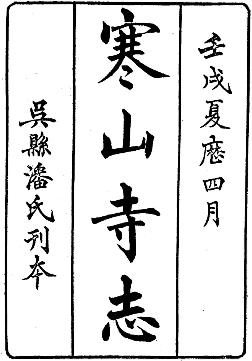 壬戌夏歷四月
寒山寺志
吳縣潘氏刊本